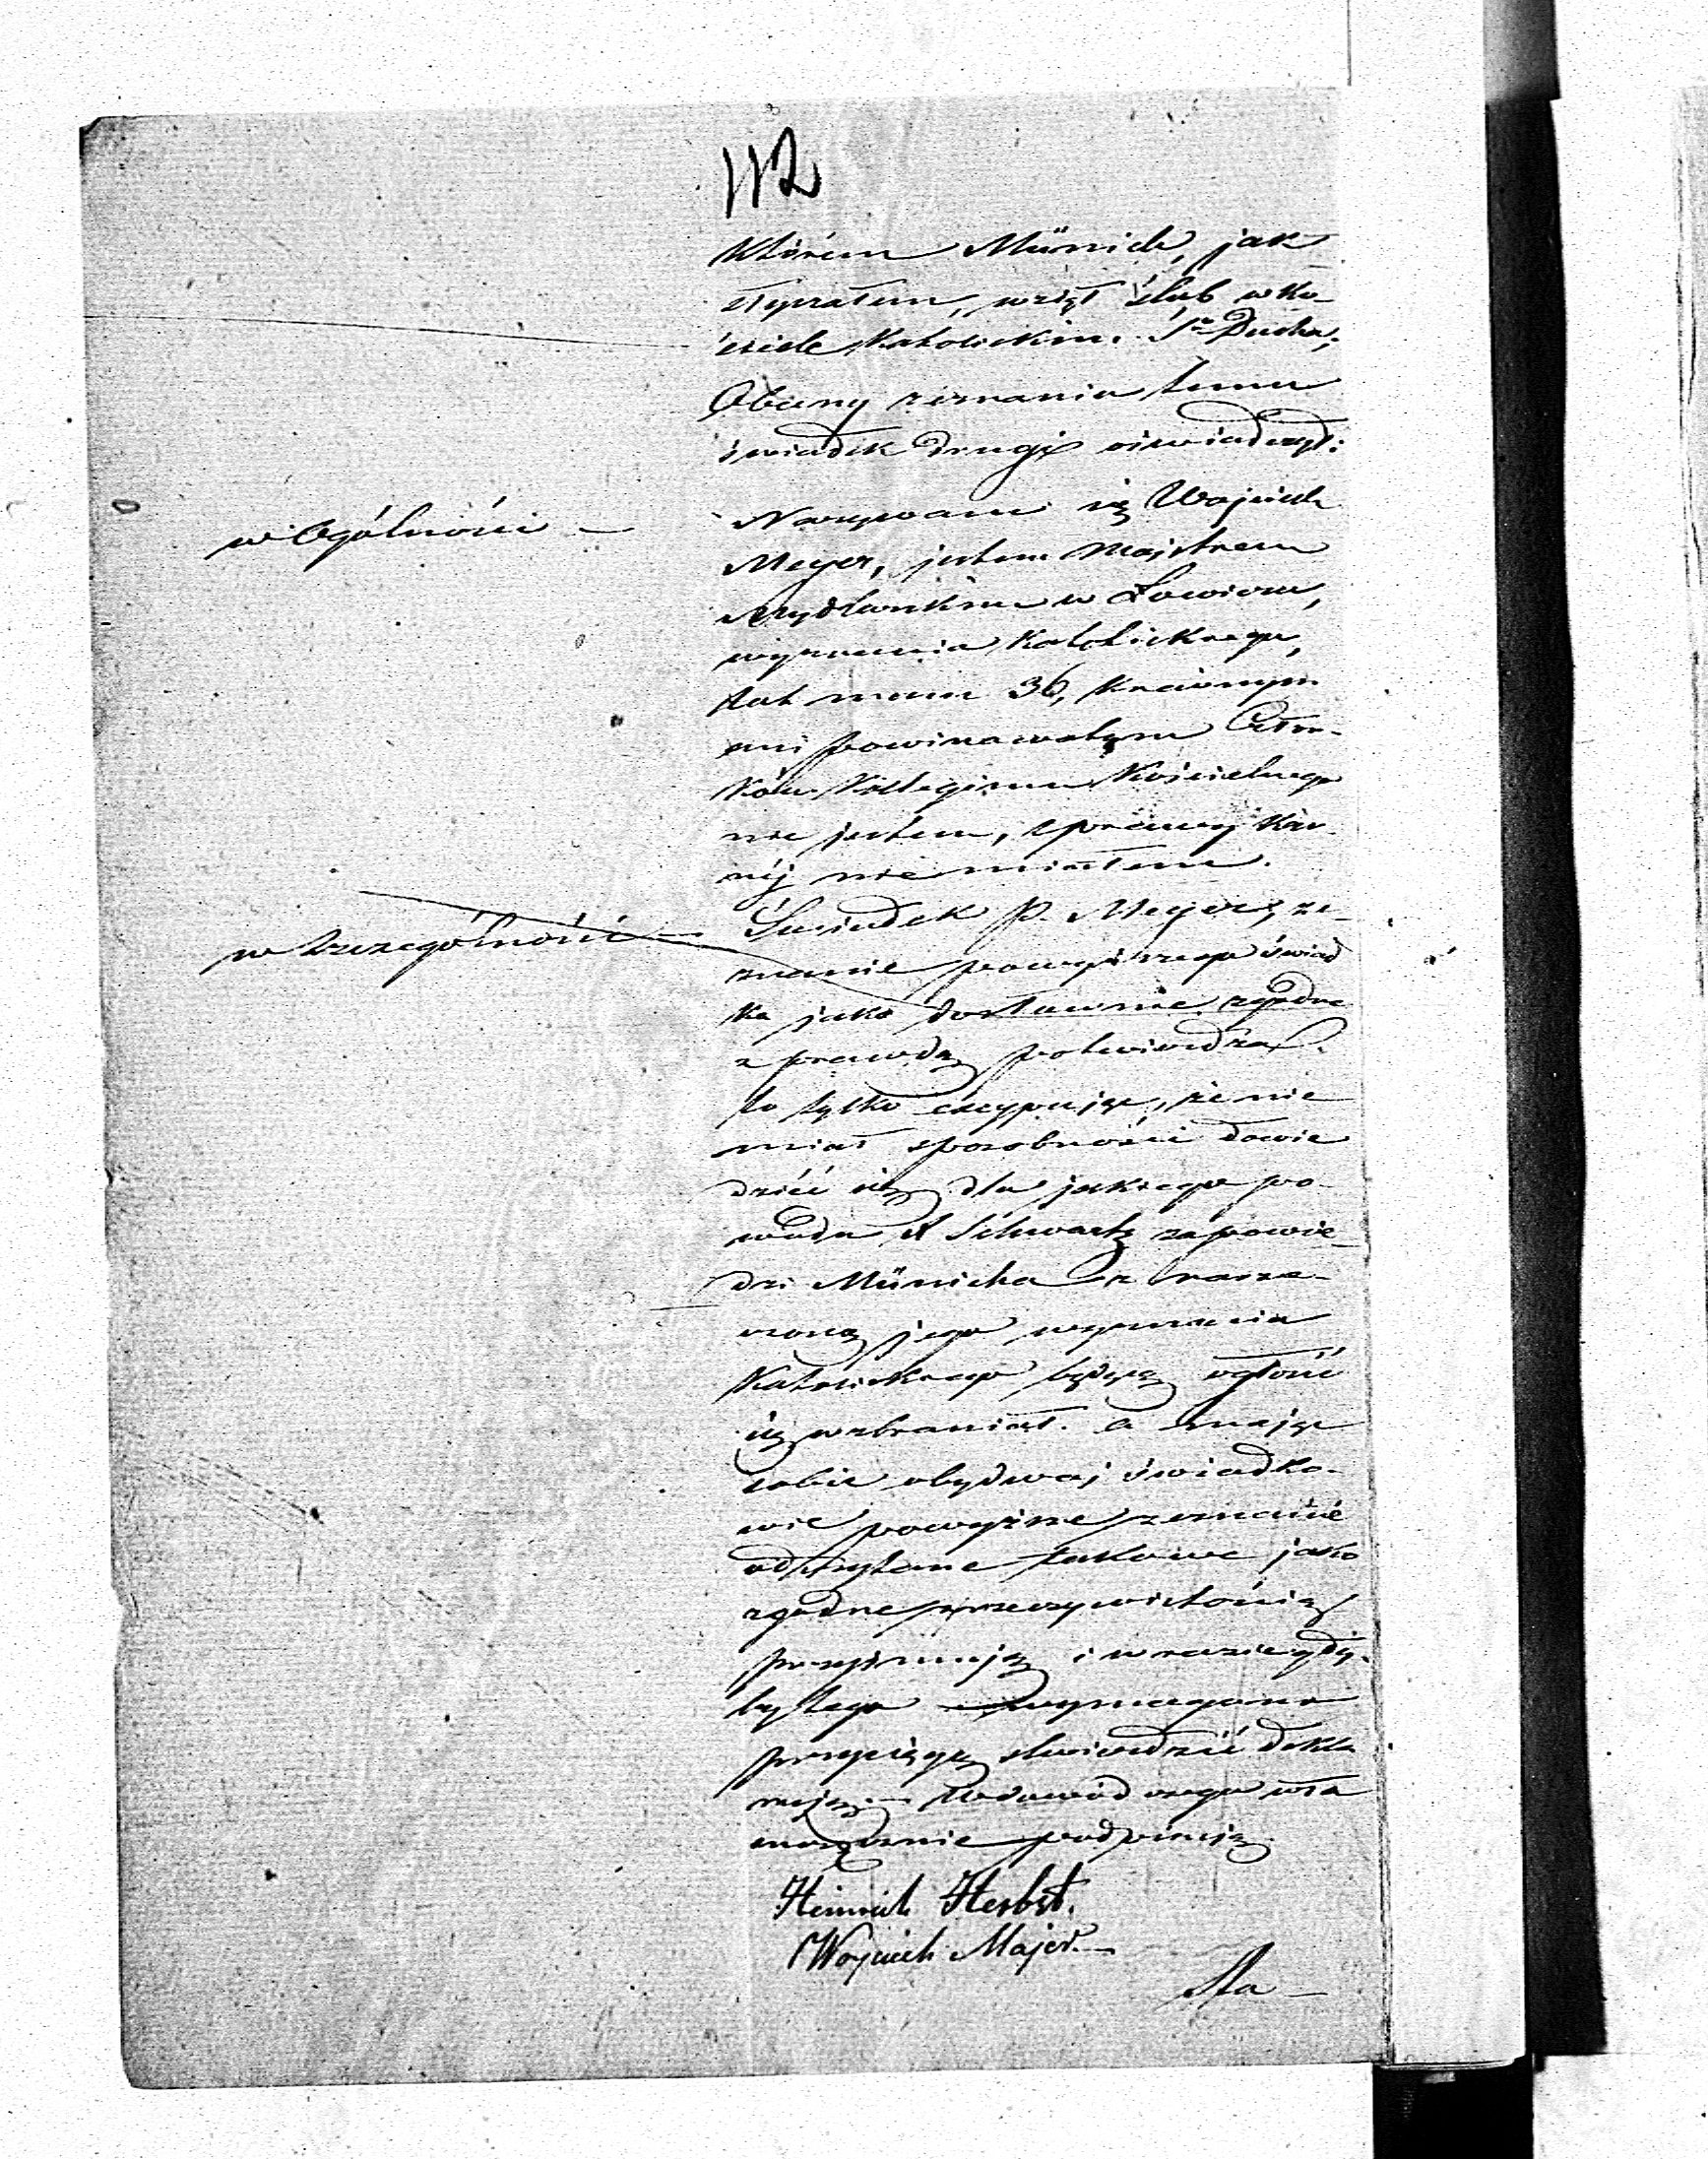 112
którem Münich, jak
słyszałem, wziął ślub w ko-
ściele katolickim Sgo Ducha;
Obecny zeznaniu temu
świadek drugi oświadczył:
w Ogólności —
Nazywam się Wojciech
Meyer, jestem Majstrem
Mydlarskim w Łowiczu,
wyznania Katolickiego,
lat mam 36, krewnym
ani powinowatym Człon-
ków Kollegium Kościelnego
nie jestem, sprawy kar-
néj nie miałem.
w Szczególności —
Świadek P. Meyer, ze-
znanie powyższego świad
ka jako dosłownie zgodne
z prawdą potwierdza
to tylko excypując, że nie
miał sposobności dowie
dzić się dla jakiego po-
wodu X Schwartz zapowie-
dzi Münicha z narze-
czoną jego wyznania
Katolickiego będącą ogłosić
się wzbraniał. a mając
sobie obydwaj świadko-
wie powyższe zeznanie
odczytane takowe jako
zgodne z rzeczywistością
przyjmują i w razie gdy-
by tego wymagano
przysięgą stwierdzić dekla
rują. — Na dowód czego wła
snoręcznie podpisują
Heinrich Herbst.
Wojciech Majer. —
Sta —